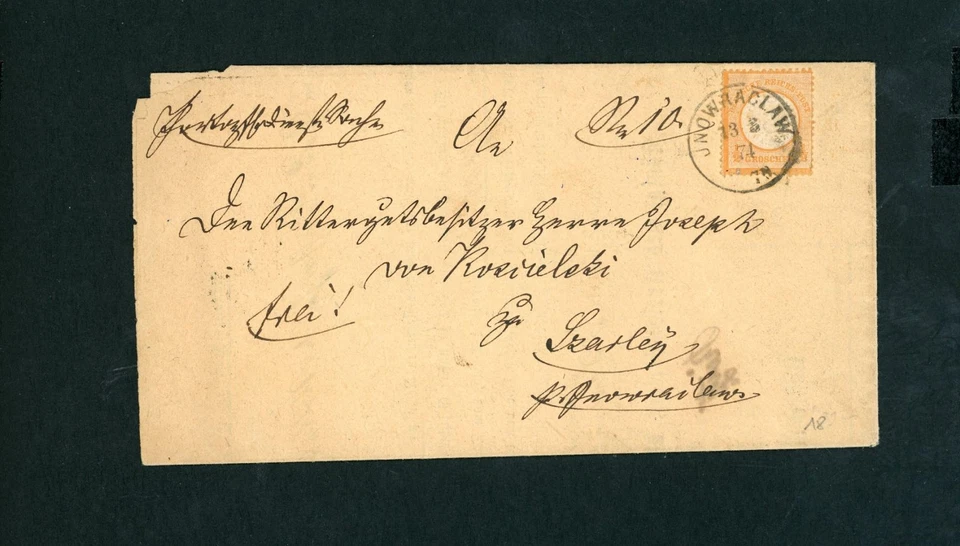 An
No 10.
JNOWRACLAW
13 3
74
7N.
GROSCHEN
Den Rittergutsbesitzer Herrn Joseph
von Koscielski
frei!
zu
Szarley
p. Inowraclaw
18